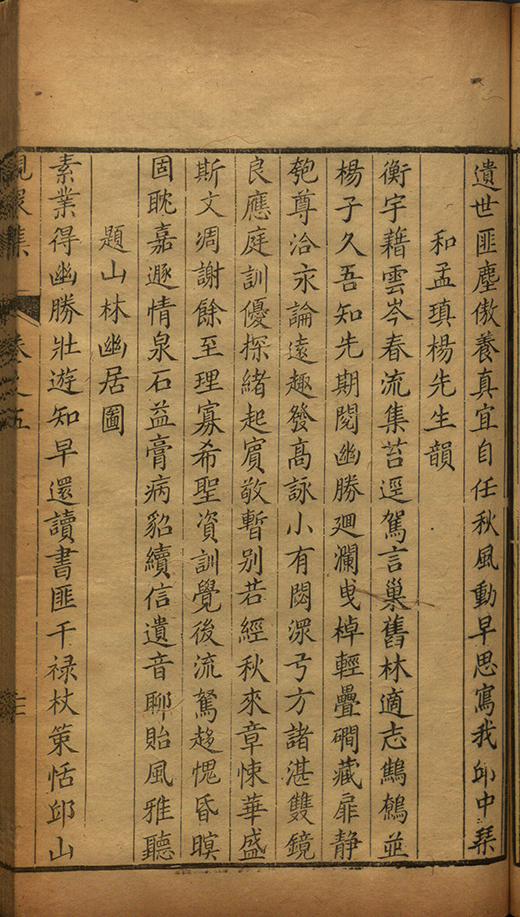 遺世匪塵傲養真宜自任秋風動早思寫我邱中琹
和孟瑱楊先生韻
衡宇藉雲岑春流集苔逕駕言巢舊林適志鷦鷯並
楊子久吾知先期閲幽勝廻瀾曳棹輕疊磵藏扉静
匏尊洽永論遠趣發高詠小有閟深兮方諸湛雙鏡
良應庭訓優探緒起賔敬暫别若經秋來章悚華盛
斯文凋謝餘至理寡希聖資訓覺後流駑趍愧昏暝
固耽嘉遯情泉石益膏病貂續信遺音聊貽風雅聽
題山林幽居圖
素業得幽勝壯遊知早還讀書匪干禄杖策恬邱山
卷之五